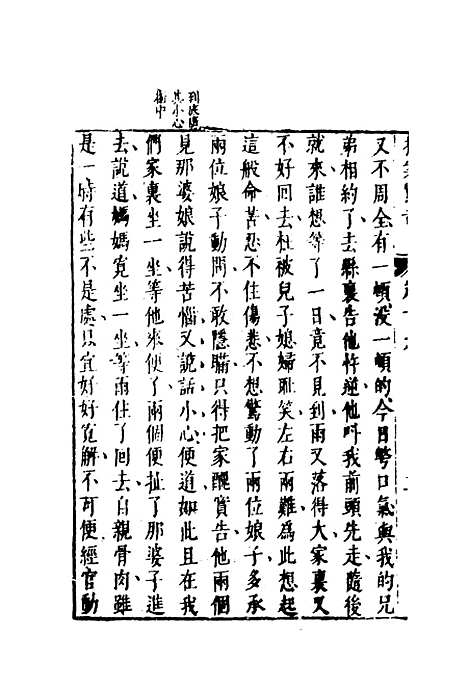 到底還
其小心
衙中
又不周全有一頓没一頓的今日彆口氣與我的兄
弟相約了去縣裏告他忤逆他呌我前頭先走隨後
就來誰想等了一日竟不見到雨又落得大家裏又
不好回去枉被兒子媳婦恥笑左右兩難爲此想起
這般命苦忍不住傷悲不想驚動了兩位娘子多承
兩位娘子動問不敢隱瞞只得把家醜實告他兩個
見那婆娘說得苦惱又說話小心便道如此且在我
們家裏坐一坐等他來便了兩個便扯了那婆子進
去說道媽媽寛坐一坐等雨住了回去自親骨肉雖
是一時有些不是處只宜好好寛解不可便經官動